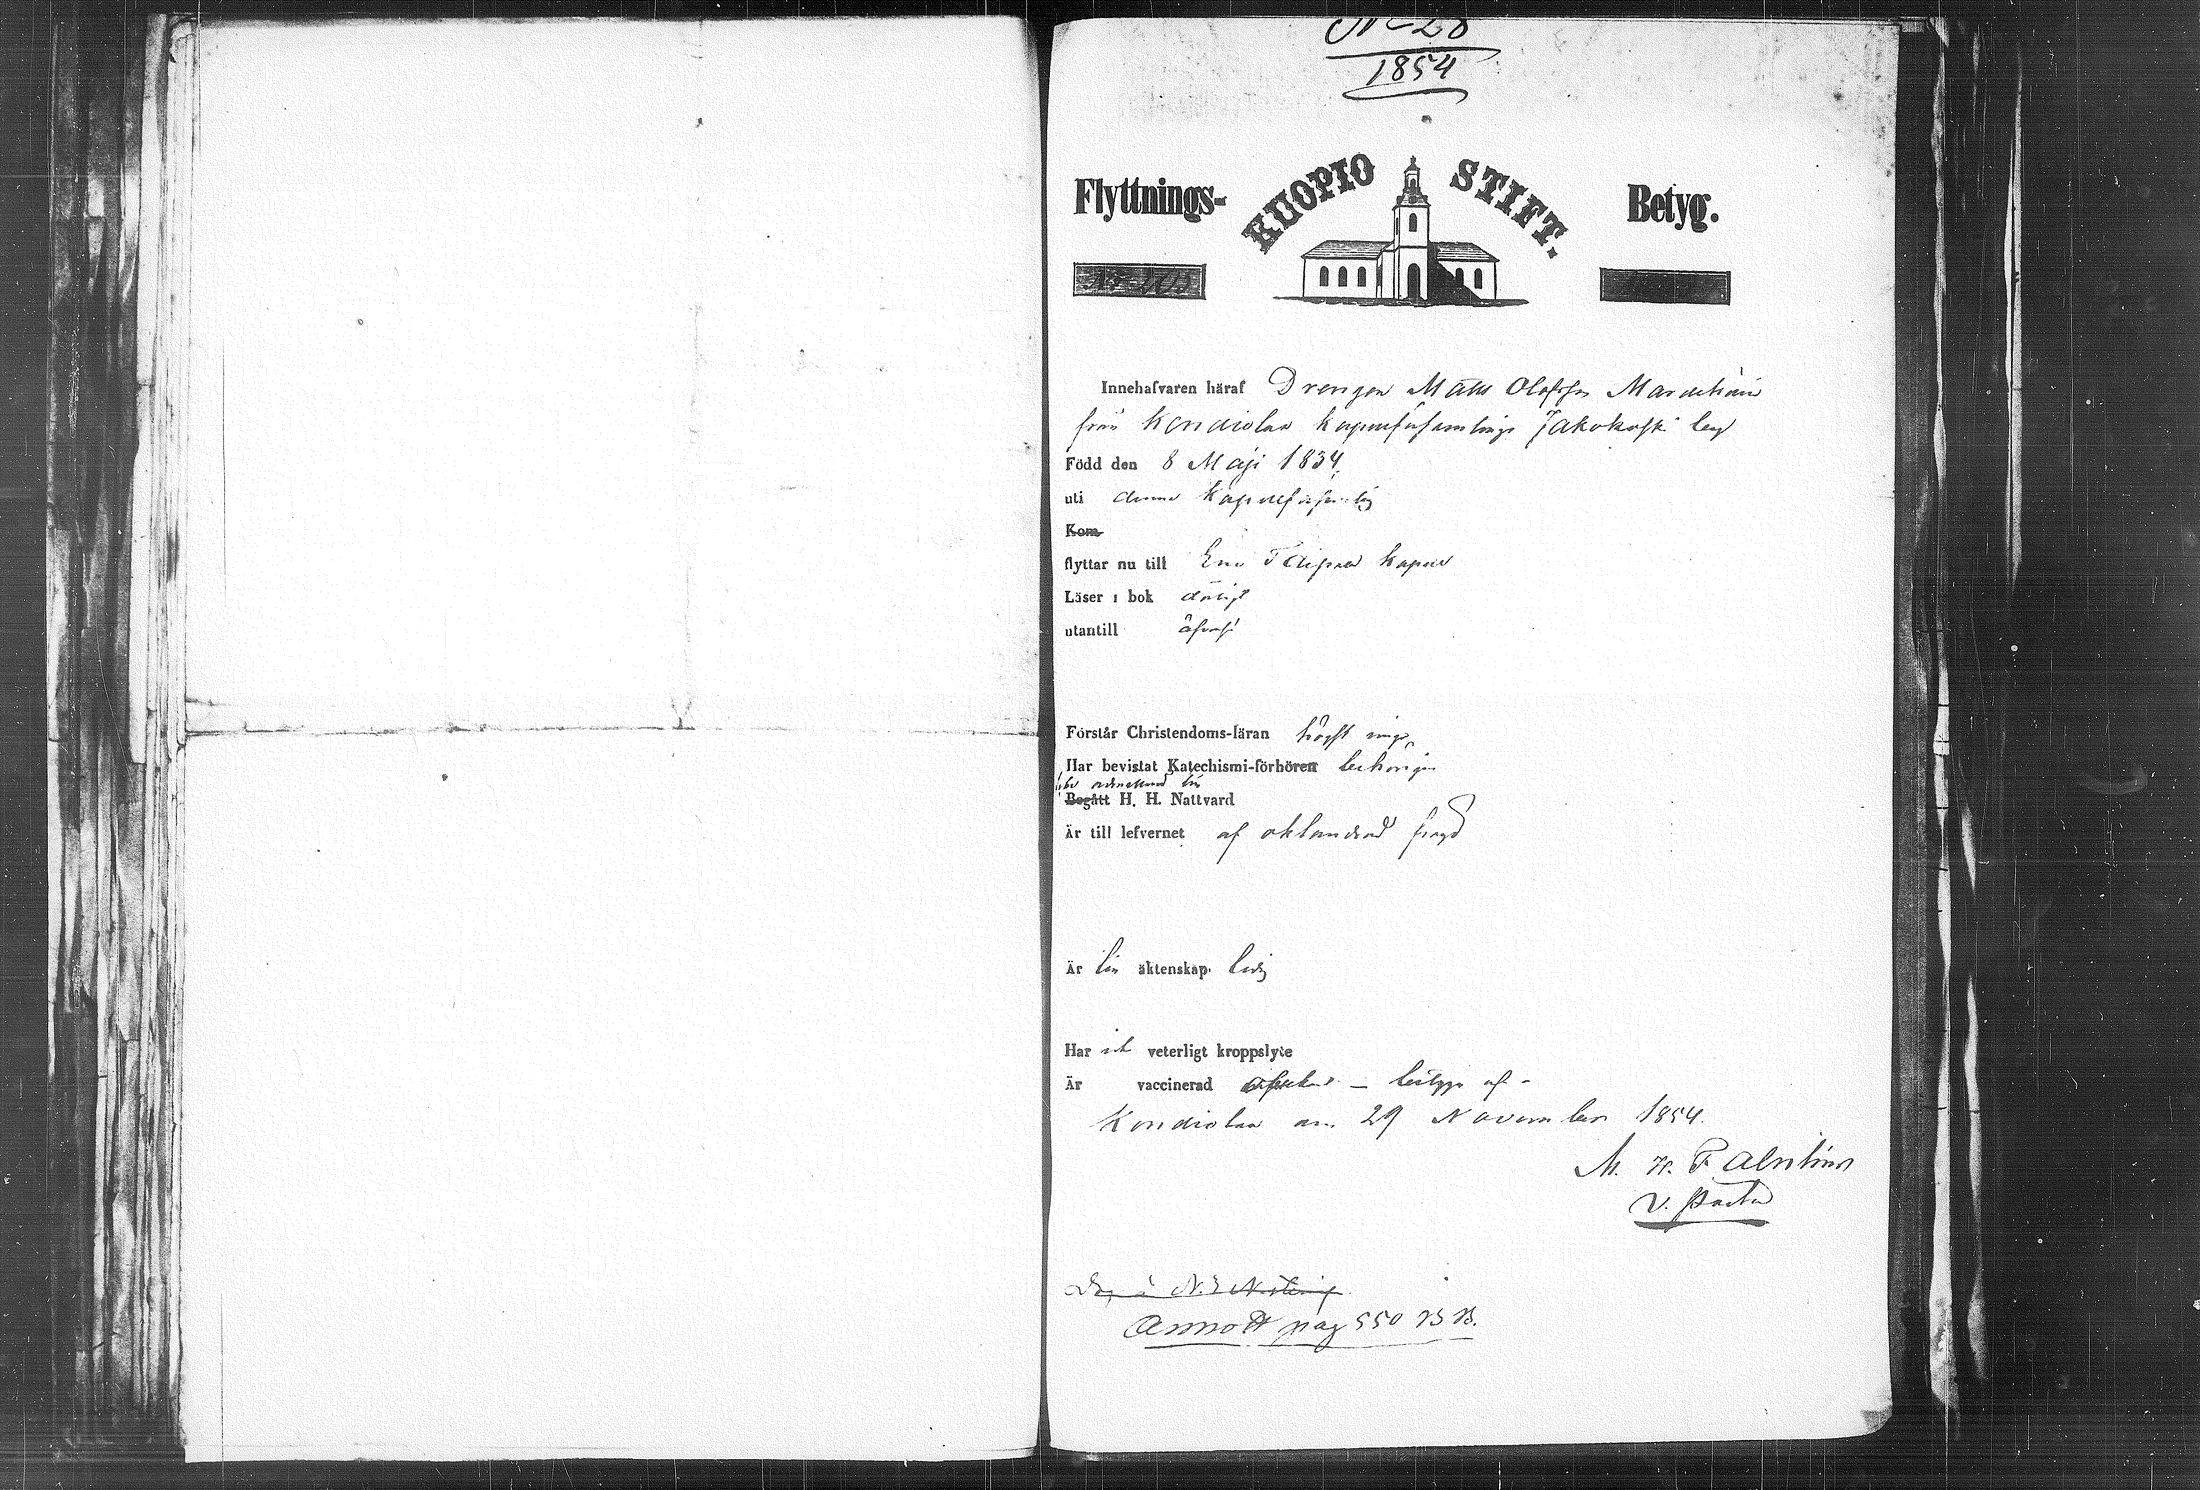 N 28
1854
Flyttnings- KUOPIO STIFT. Betyg.
Innehafvaren häraf Drengen Matts Olofsson
från Kondiolax Kapellförsamlings Jakokoski by
Född den 8 Maji 1834
uti denna Kapellförsamling
Kom
flyttar nu till Eno Kapell
Läser i bok dåligt
utantill
Förstår Christendoms-läran högst ringa
Har bevistat Katechismi-förhören behörigen
Begått H. H. Nattvard
Är till lefvernet af oklandrad frejd
Är till äktenskap ledig
Har ick veterligt kroppslyte
Är vaccinerad betygar
Kondiolax den 29 November 1854.
M. H.
V. Pastor
Annott pag 550 B B.